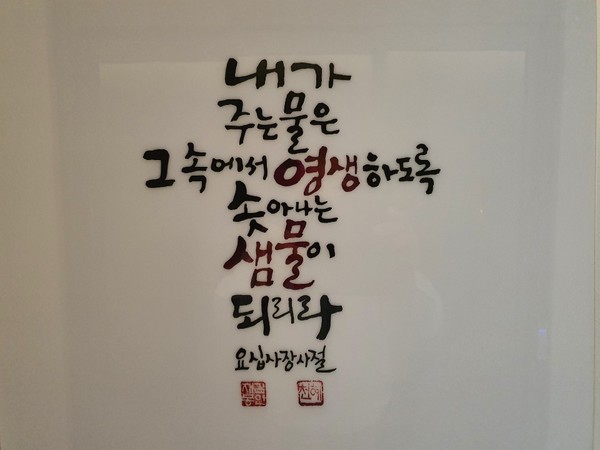 내가
주는물은
그 속에서 영생하도록
솟아나는
샘물이
되리라
요십사장사절